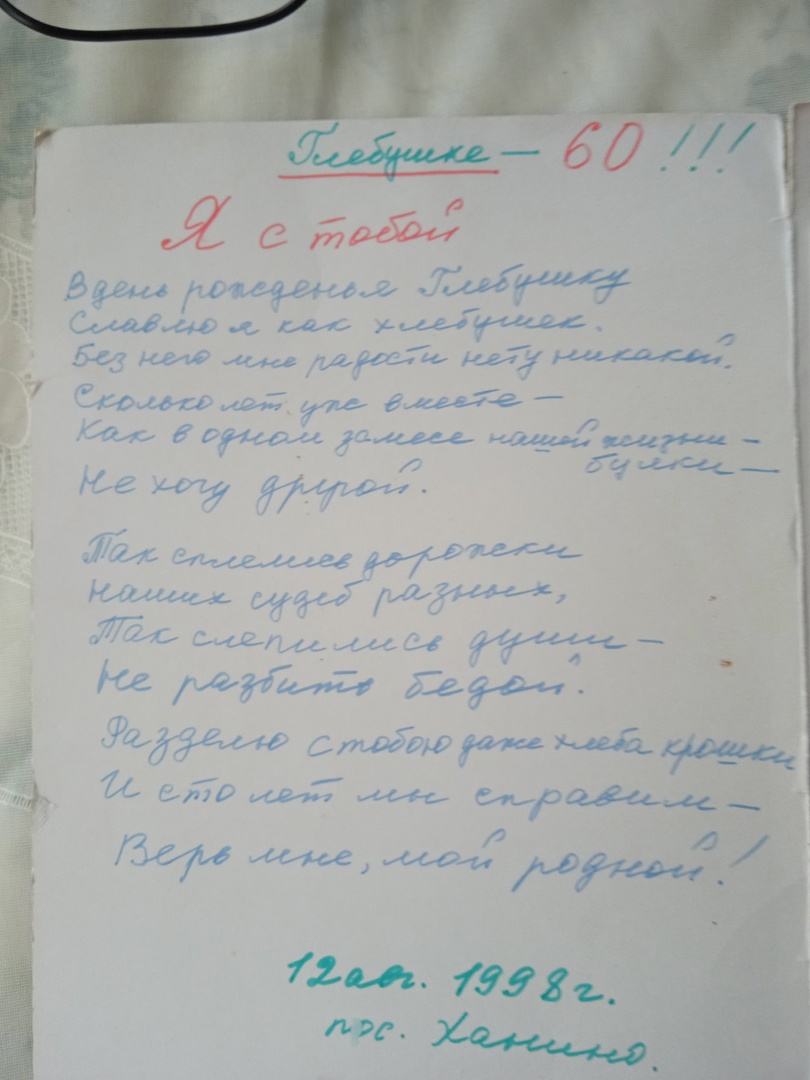 Глебушке — 60!!!
Я с тобой
В день рожденья Глебушку
Славлю я как хлебушек.
Без него мне радости нету никакой.
Сколько лет уже вместе —
Как в одном замесе нашей жизни —
булки —
Не хочу другой.
Так сплелись дорожки
Наших судеб разных,
Так слепились души —
Не разбить бедой.
Разделю с тобою даже хлеба крошки
И сто лет мы справим —
Верь мне, мой родной!
12 авг. 1998 г.
пос. Ханино.